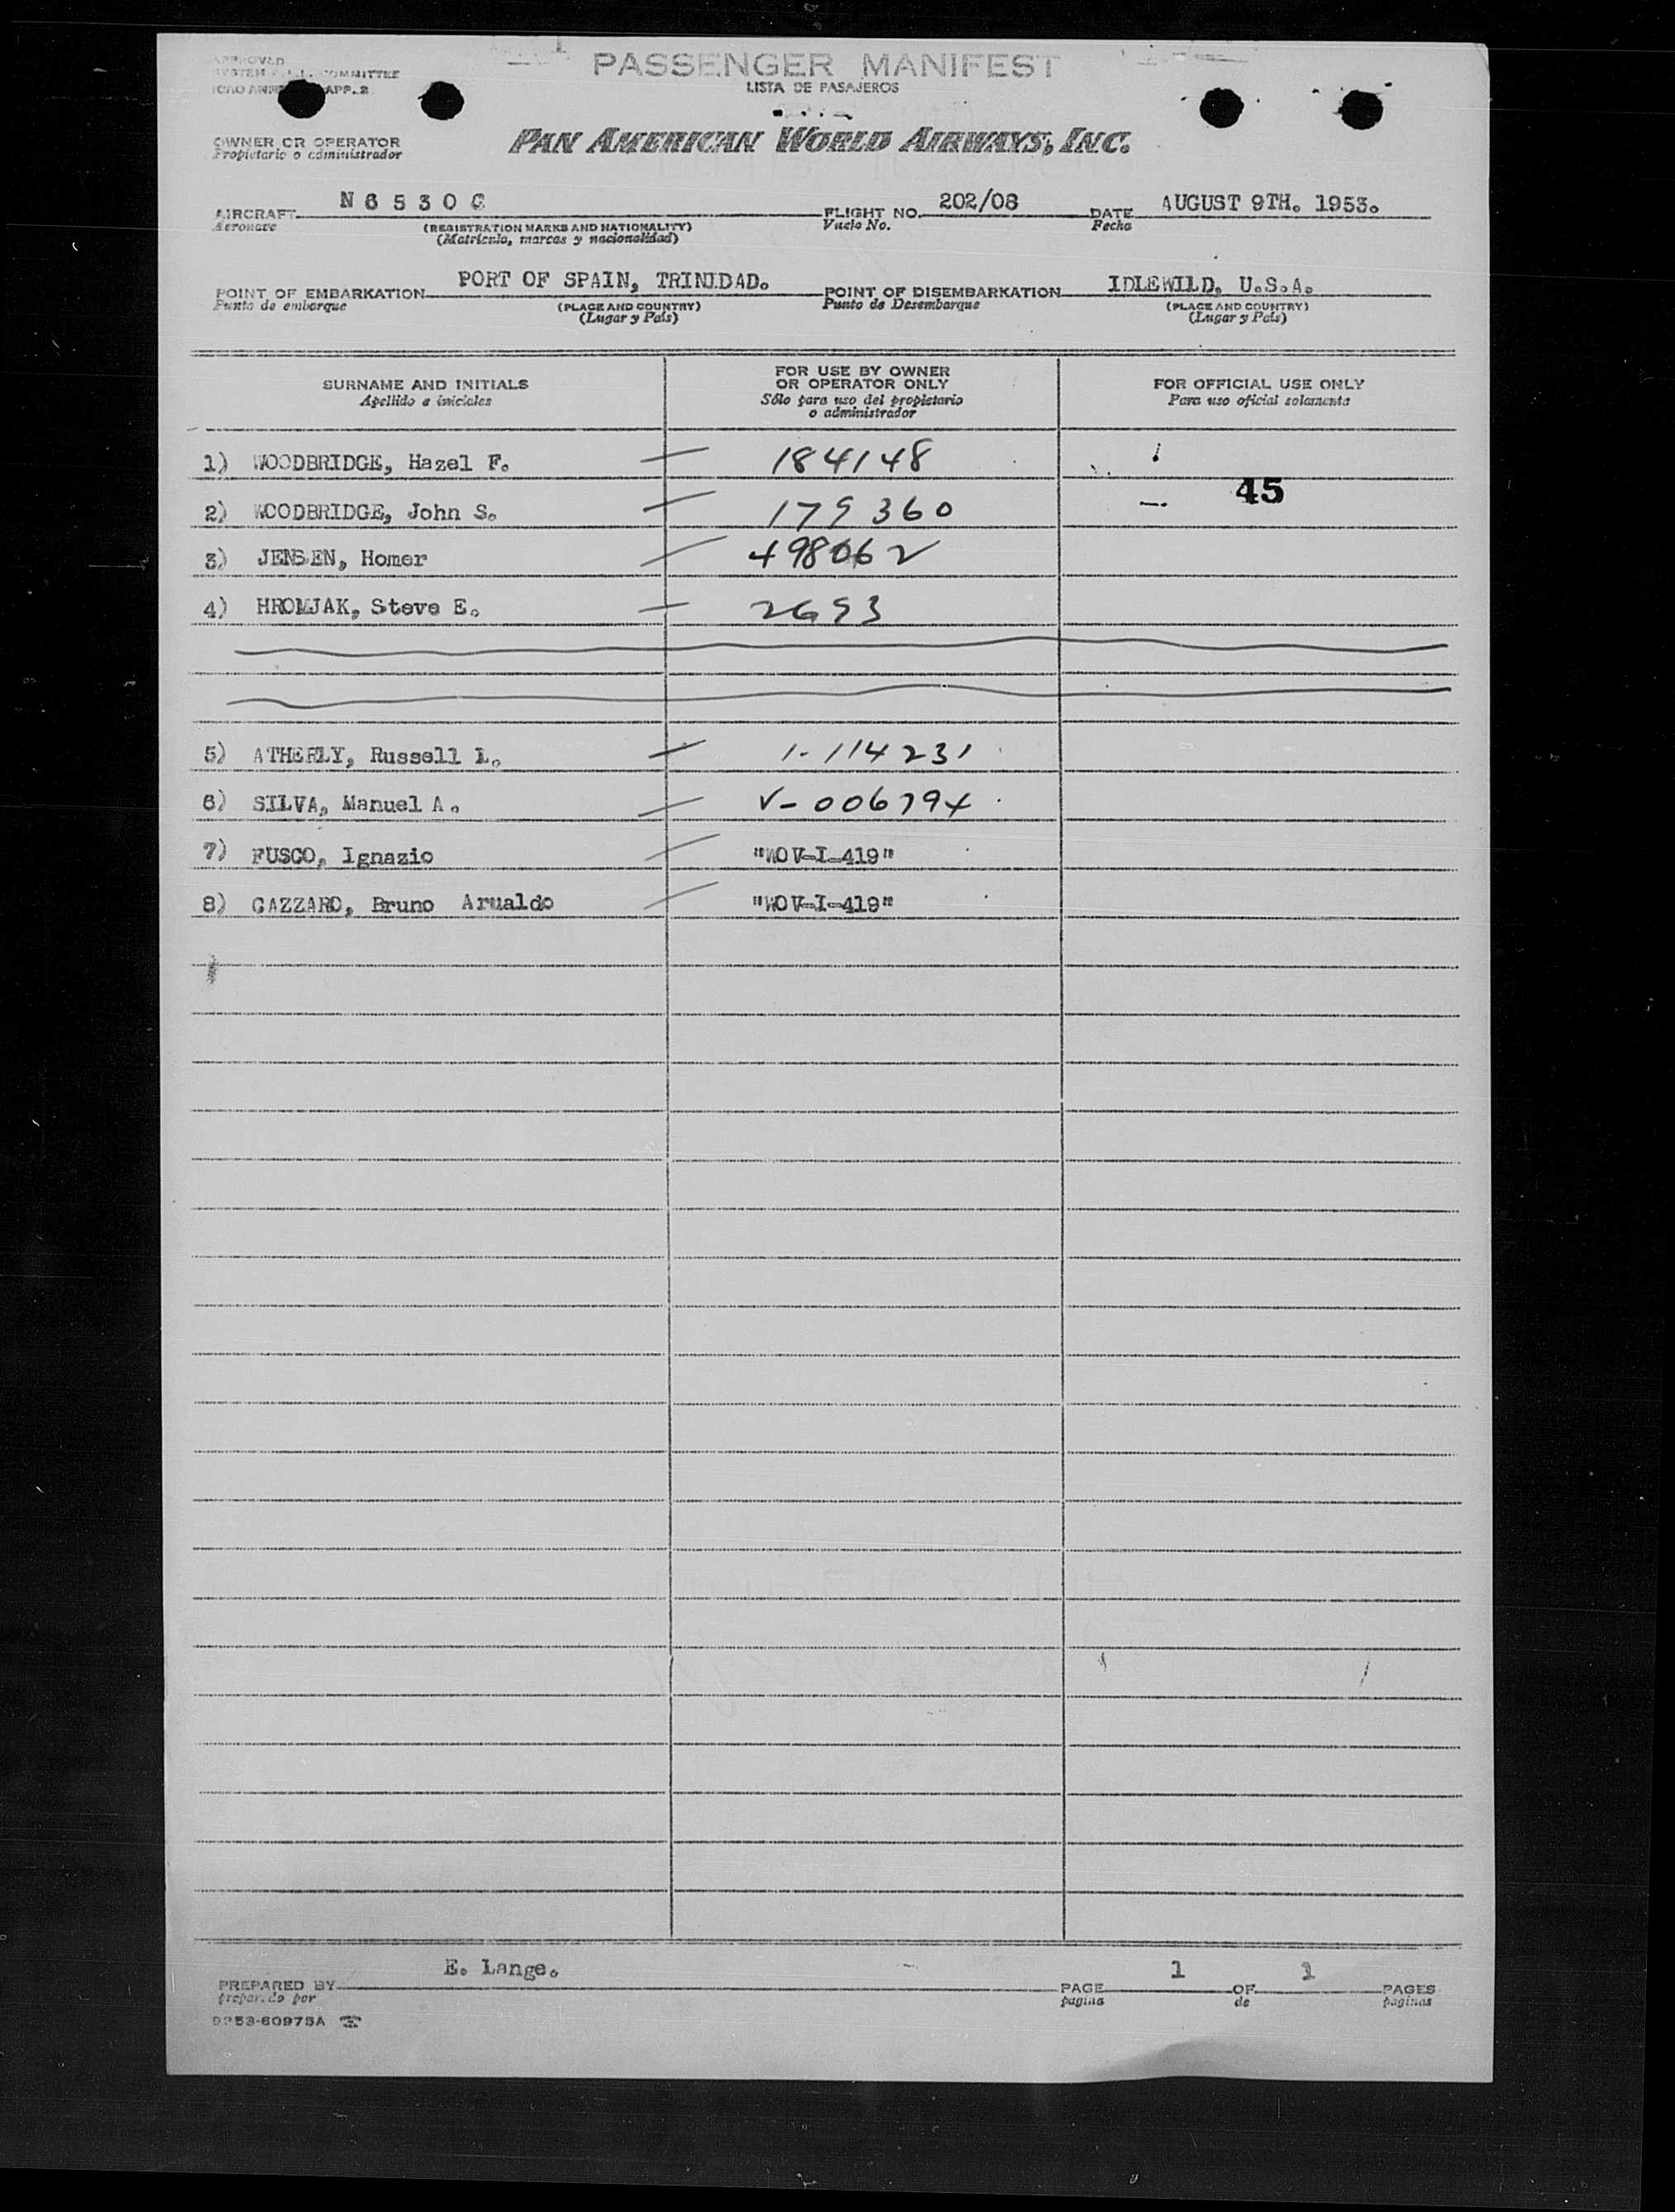 PASSENGER MANIFEST
LISTA DE PASAJEROS
APPROVED
SYSTEM COMMITTEE
ICAO APP. 2
OWNER OR OPERATOR
Propietario o administrador
PAN AMERICAN WORLD AIRWAYS, INC.
AIRCRAFT N 6 5 3 0 C FLIGHT NO. 202/08 DATE AUGUST 9TH. 1953.
Aeronave (REGISTRATION MARKS AND NATIONALITY) Vuelo No. Fecha
(Matrícula, marcas y nacionalidad)
POINT OF EMBARKATION PORT OF SPAIN, TRINIDAD. POINT OF DISEMBARKATION IDLEWILD, U.S.A.
Punto de embarque (PLACE AND COUNTRY) Punto de Desembarque (PLACE AND COUNTRY)
(Lugar y País) (Lugar y País)
SURNAME AND INITIALS
Apellido e iniciales
FOR USE BY OWNER
OR OPERATOR ONLY
Sólo para uso del propietario
o administrador
FOR OFFICIAL USE ONLY
Para uso oficial solamente
1) WOODBRIDGE, Hazel F. 184148
45
2) WOODBRIDGE, John S. 179360
3) JENSEN, Homer 498062
4) HROMJAK, Steve E. 2693
5) ATHERLY, Russell L. 1-114231
6) SILVA, Manuel A. V-006794
7) FUSCO, Ignazio "WOV-I-419"
8) GAZZARO, Bruno Arualdo "WOV-I-419"
PREPARED BY E. Lange. PAGE 1 OF 1 PAGES
preparado por pagina de paginas
9253-60975A